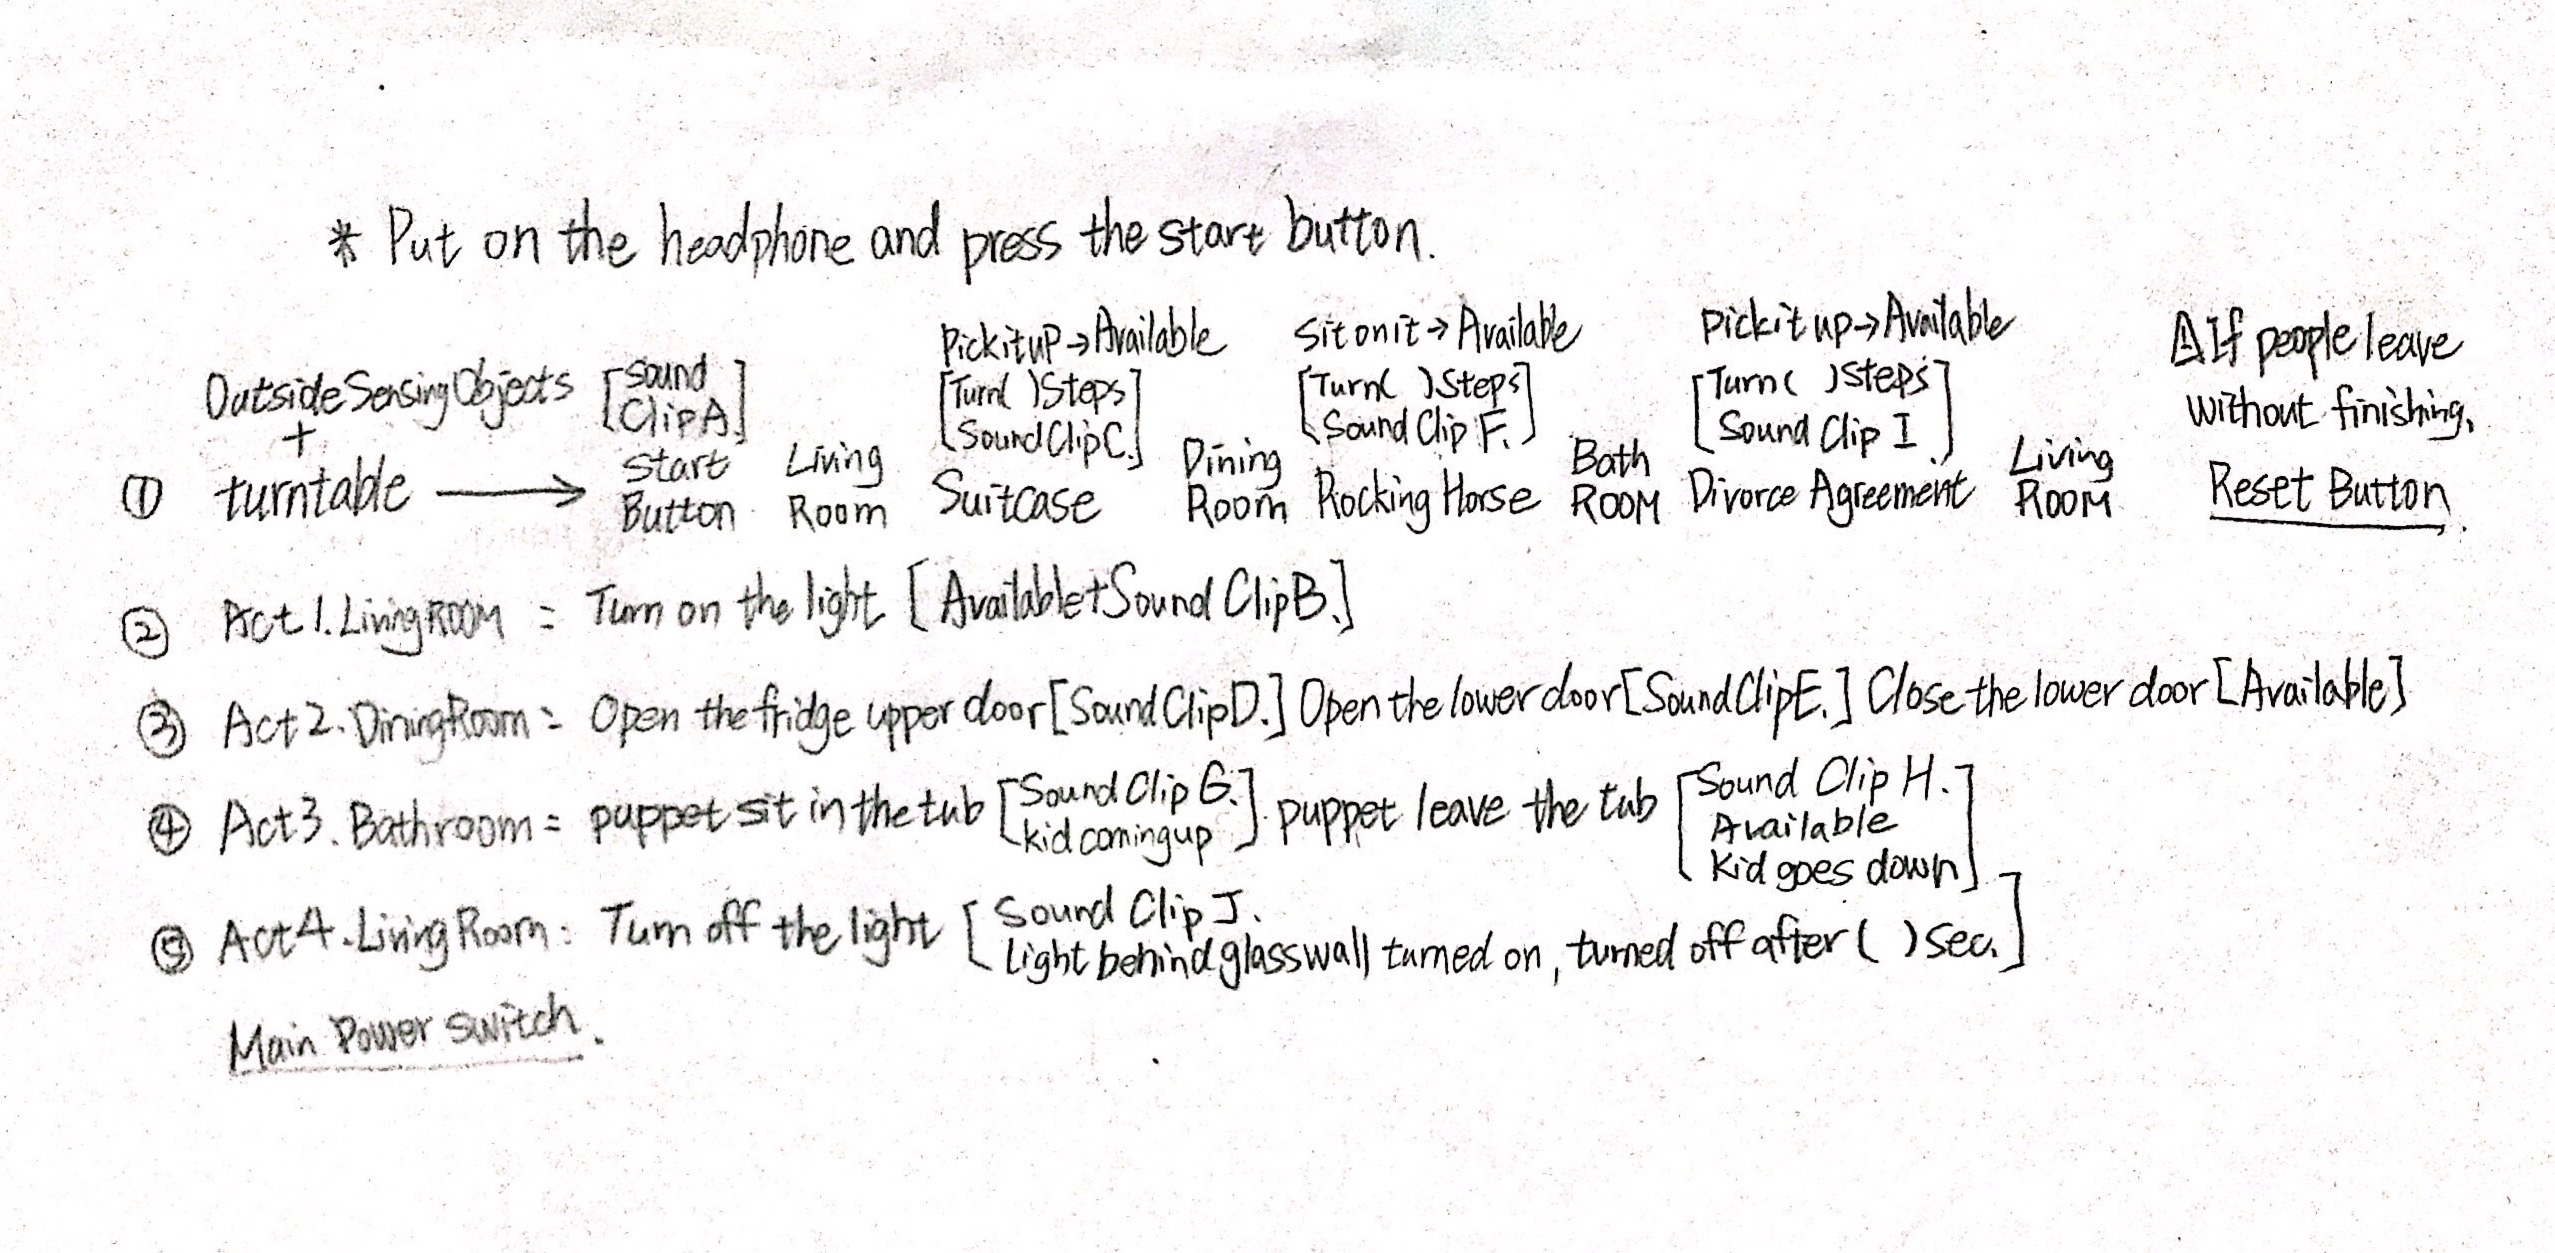 * Put on the headphone and press the start button.
Pick it up → Available
Sit on it → Available
Pick it up → Available
⚠ If people leave
without finishing,
Reset Button.
Outside Sensing Objects
+
① turntable →
[Sound
Clip A.]
Start
Button
Living
Room
[Turn( )Steps
Sound Clip C.]
Suitcase
Dining
Room
[Turn( )Steps
Sound Clip F.]
Rocking Horse
Bath
ROOM
[Turn( )Steps
Sound Clip I]
Divorce Agreement
Living
ROOM
② Act 1. Living ROOM = Turn on the light [Available + Sound Clip B.]
③ Act 2. Dining Room = Open the fridge upper door [Sound Clip D.] Open the lower door [Sound Clip E.] Close the lower door [Available]
④ Act 3. Bathroom = puppet sit in the tub [Sound Clip G. kid coming up]. puppet leave the tub [Sound Clip H. Available Kid goes down]
⑤ Act 4. Living Room: Turn off the light [Sound Clip J.
Light behind glass wall turned on, turned off after ( ) sec.]
Main Power switch.